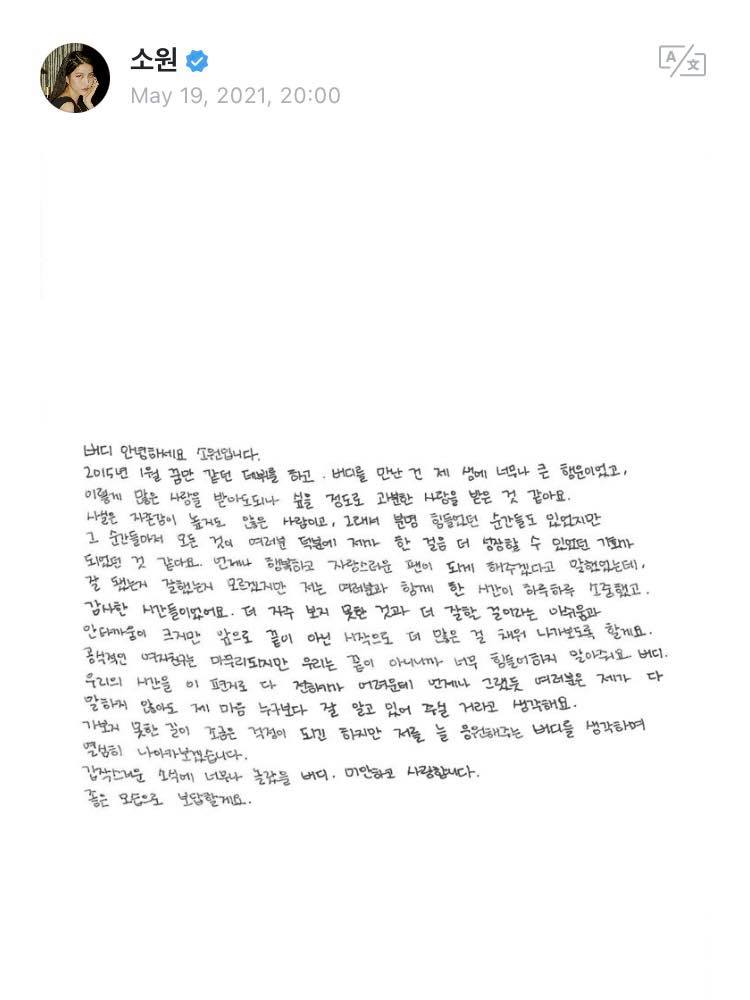 소원
May 19, 2021, 20:00
A/文
버디 안녕하세요 소원입니다.
2015년 1월 꿈만 같던 데뷔를 하고. 버디를 만난 건 제 생에 너무나 큰 행운이었고,
이렇게 많은 사랑을 받아도되나 싶을 정도로 과분한 사랑을 받은 것 같아요.
사실은 자존감이 높지도 않은 사람이고, 그래서 분명 힘들었던 순간들도 있었지만
그 순간들마저 모든 것이 여러분 덕분에 제가 한 걸음 더 성장할 수 있었던 기회가
되었던 것 같아요. 언제나 행복하고 자랑스러운 팬이 되게 해주겠다고 말했었는데,
잘 됐는지 잘했는지 모르겠지만 저는 여러분과 함께 한 시간이 하루하루 소중했고.
감사한 시간들이었어요. 더 자주 보지 못한 것과 더 잘할 걸이라는 아쉬움과
안타까움이 크지만 앞으로 끝이 아닌 시작으로 더 많은 걸 채워 나가보도록 할게요.
공식적인 여자친구는 마무리되지만 우리는 끝이 아니니까 너무 힘들어하지 말아줘요. 버디.
우리의 시간을 이 편지로 다 전하기가 어려운데 언제나 그랬듯 여러분은 제가 다
말하지 않아도 제 마음 누구보다 잘 알고 있어 주실 거라고 생각해요.
가보지 못한 길이 조금은 걱정이 되긴 하지만 저를 늘 응원해주는 버디를 생각하며
열심히 나아가보겠습니다.
갑작스러운 소식에 너무나 놀랐을 버디. 미안하고 사랑합니다.
좋은 모습으로 보답할게요.